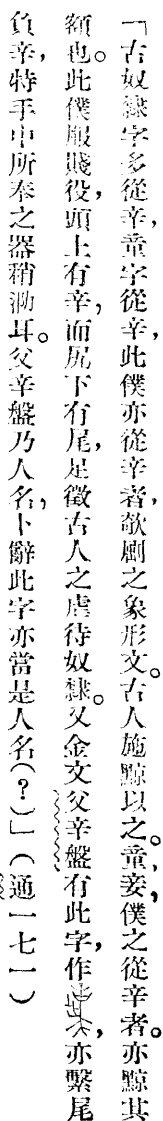 「古奴隸字多從辛，童字從辛，此僕亦從辛者，欹劂之象形文。古人施黥以之。童，妾，僕之從辛者。亦黥其
額也。此僕服賤役，頭上有辛，而尻下有尾，足徵古人之虐待奴隸。又金文父辛盤有此字，作，亦繫尾
負辛，特手中所奉之器稍泐耳。父辛盤乃人名，卜辭此字亦當是人名（？）」（通一七一）